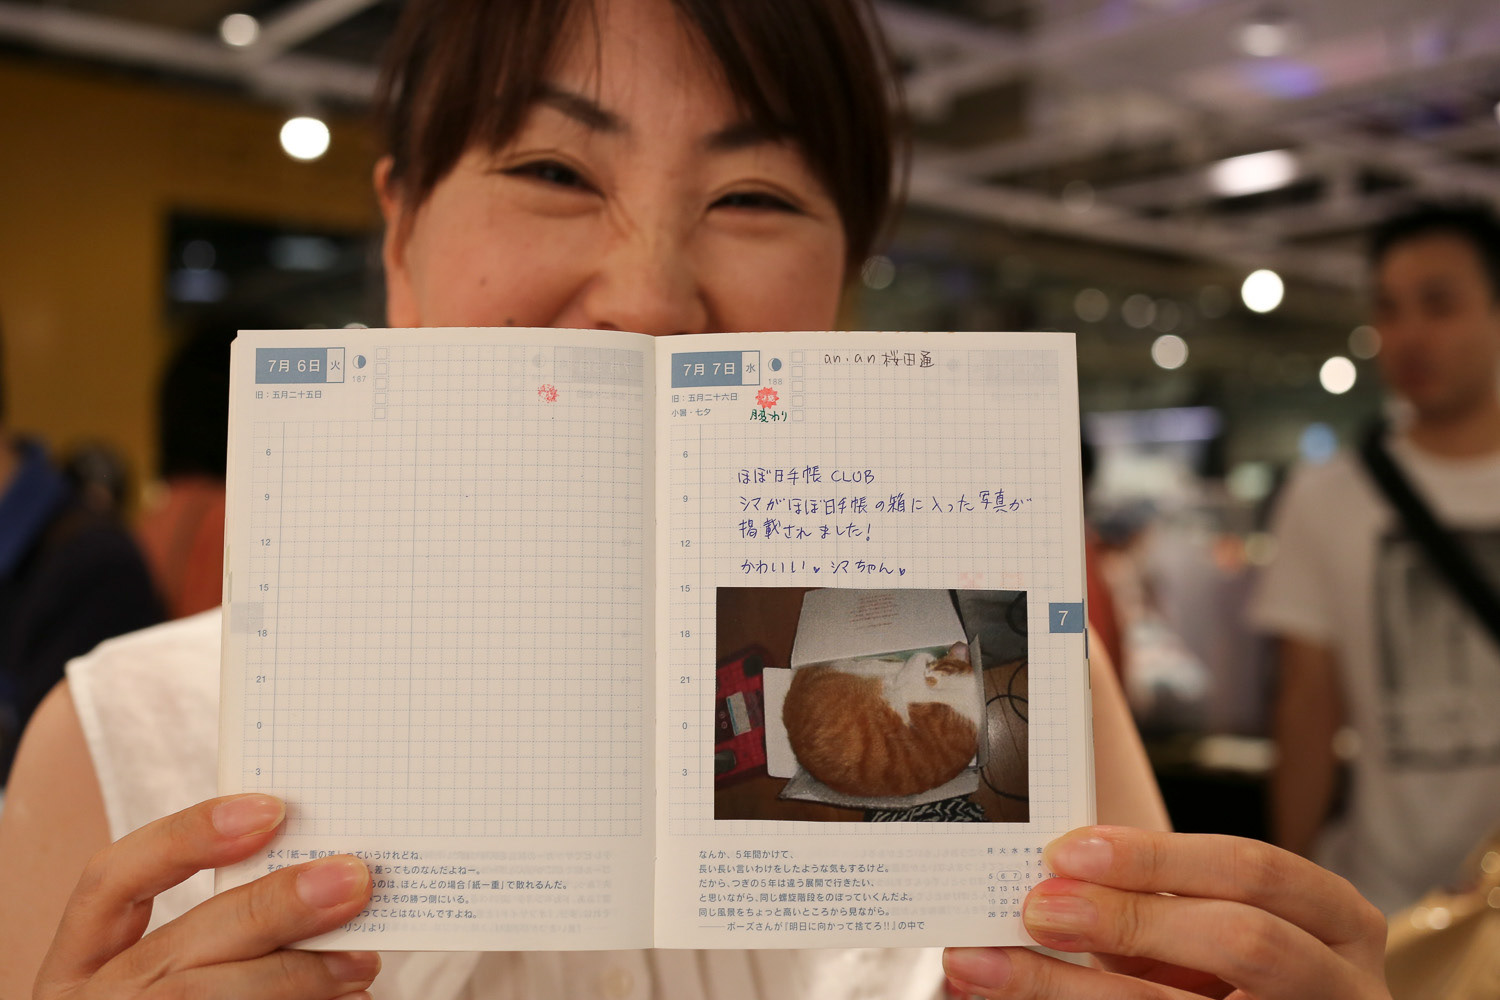 7月 6日 火
187
旧：五月二十五日
6
9
12
15
18
21
0
3
よく「紙一重の差」っていうけれどね、
差ってものなんだよねー。
うのは、ほとんどの場合「紙一重」で散れるんだ。
つもその勝つ側にいる。
ってことはないんですよね。
リン』より
7月 7日 水
188
旧：五月二十六日
小暑・七夕
腹変わり
an・an 桜田通
6
9
12
15
18
21
0
3
ほぼ日手帳 CLUB
シマがほぼ日手帳の箱に入った写真が
掲載されました!
かわいい♥ シマちゃん♥
7
なんか、5年間かけて、
長い長い言いわけをしたような気もするけど。
だから、つぎの5年は違う展開で行きたい、
と思いながら、同じ螺旋階段をのぼっていくんだよ。
同じ風景をちょっと高いところから見ながら。
——ボーズさんが『明日に向かって捨てろ!!』の中で
月 火 水 木 金
1 2
5 6 7 8 9 10
12 13 14 15
19 20 21
26 27 28